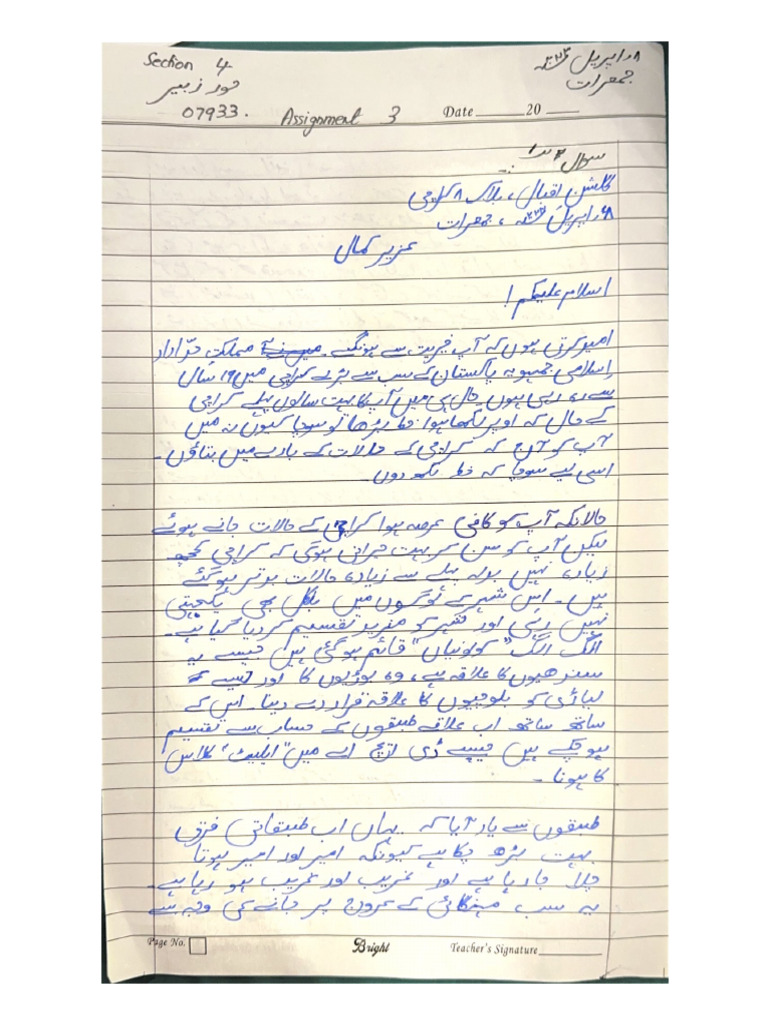 Section 4
۱۸ اپریل ۲۰۲۴ء
جمعرات
نور زبیر
07933.
Assignment 3
Date 20
سوال
گلشنِ اقبال، بلاک ۸ کراچی
۱۸ اپریل ۲۰۲۴ء، جمعرات
عزیر کمال
اسلام علیکم!
امید کرتی ہوں کہ آپ خیریت سے ہونگے۔ میں نے مملکتِ خداداد
اسلامی جمہوریہ پاکستان کے سب سے بڑے کراچی میں ۱۹ سال
سے رہ رہی ہوں۔ حال ہی میں آپ کا بہت سالوں پہلے کراچی
کے حال کہ اوپر لکھا ہوا خط پڑھا تو سوچا کیوں نہ میں
آپ کو آج کہ کراچی کے حالات کے بارے میں بتاؤں۔
اسی لیے سوچا کہ خط لکھ دوں۔
حالانکہ آپ کو کافی عرصہ ہوا کراچی کے حالات جانے ہوئے
لیکن آپ کو سن کر بہت حیرانی ہوگی کہ کراچی کچھ
زیادہ نہیں بدلہ پہلے سے زیادہ حالات بدتر ہو گئے
ہیں۔ اس شہر کے لوگوں میں بالکل بھی یکجہتی
نہیں رہی اور شہر کو مزید تقسیم کر دیا گیا ہے۔
الگ الگ "کولونیاں" قائم ہوگئی ہیں جیسے یہ
سندھیوں کا علاقہ ہے، وہ بوڑیوں کا اور جیسے
لیاری کو بلوچیوں کا علاقہ قرار دے دینا۔ اس کے
ساتھ ساتھ اب علاقے طبقوں کے حساب سے تقسیم
ہو چکے ہیں جیسے ڈی ایچ اے میں "ایلیٹ" کلاس
کا ہونا۔
طبقوں سے یاد آیا کہ یہاں اب طبقاتی فرق
بہت بڑھ چکا ہے کیونکہ امیر اور امیر ہوتا
چلا جا رہا ہے اور غریب اور غریب ہو رہا ہے۔
یہ سب مہنگائی کے عروج پر جانے کی وجہ سے
Page No.
Bright
Teacher's Signature